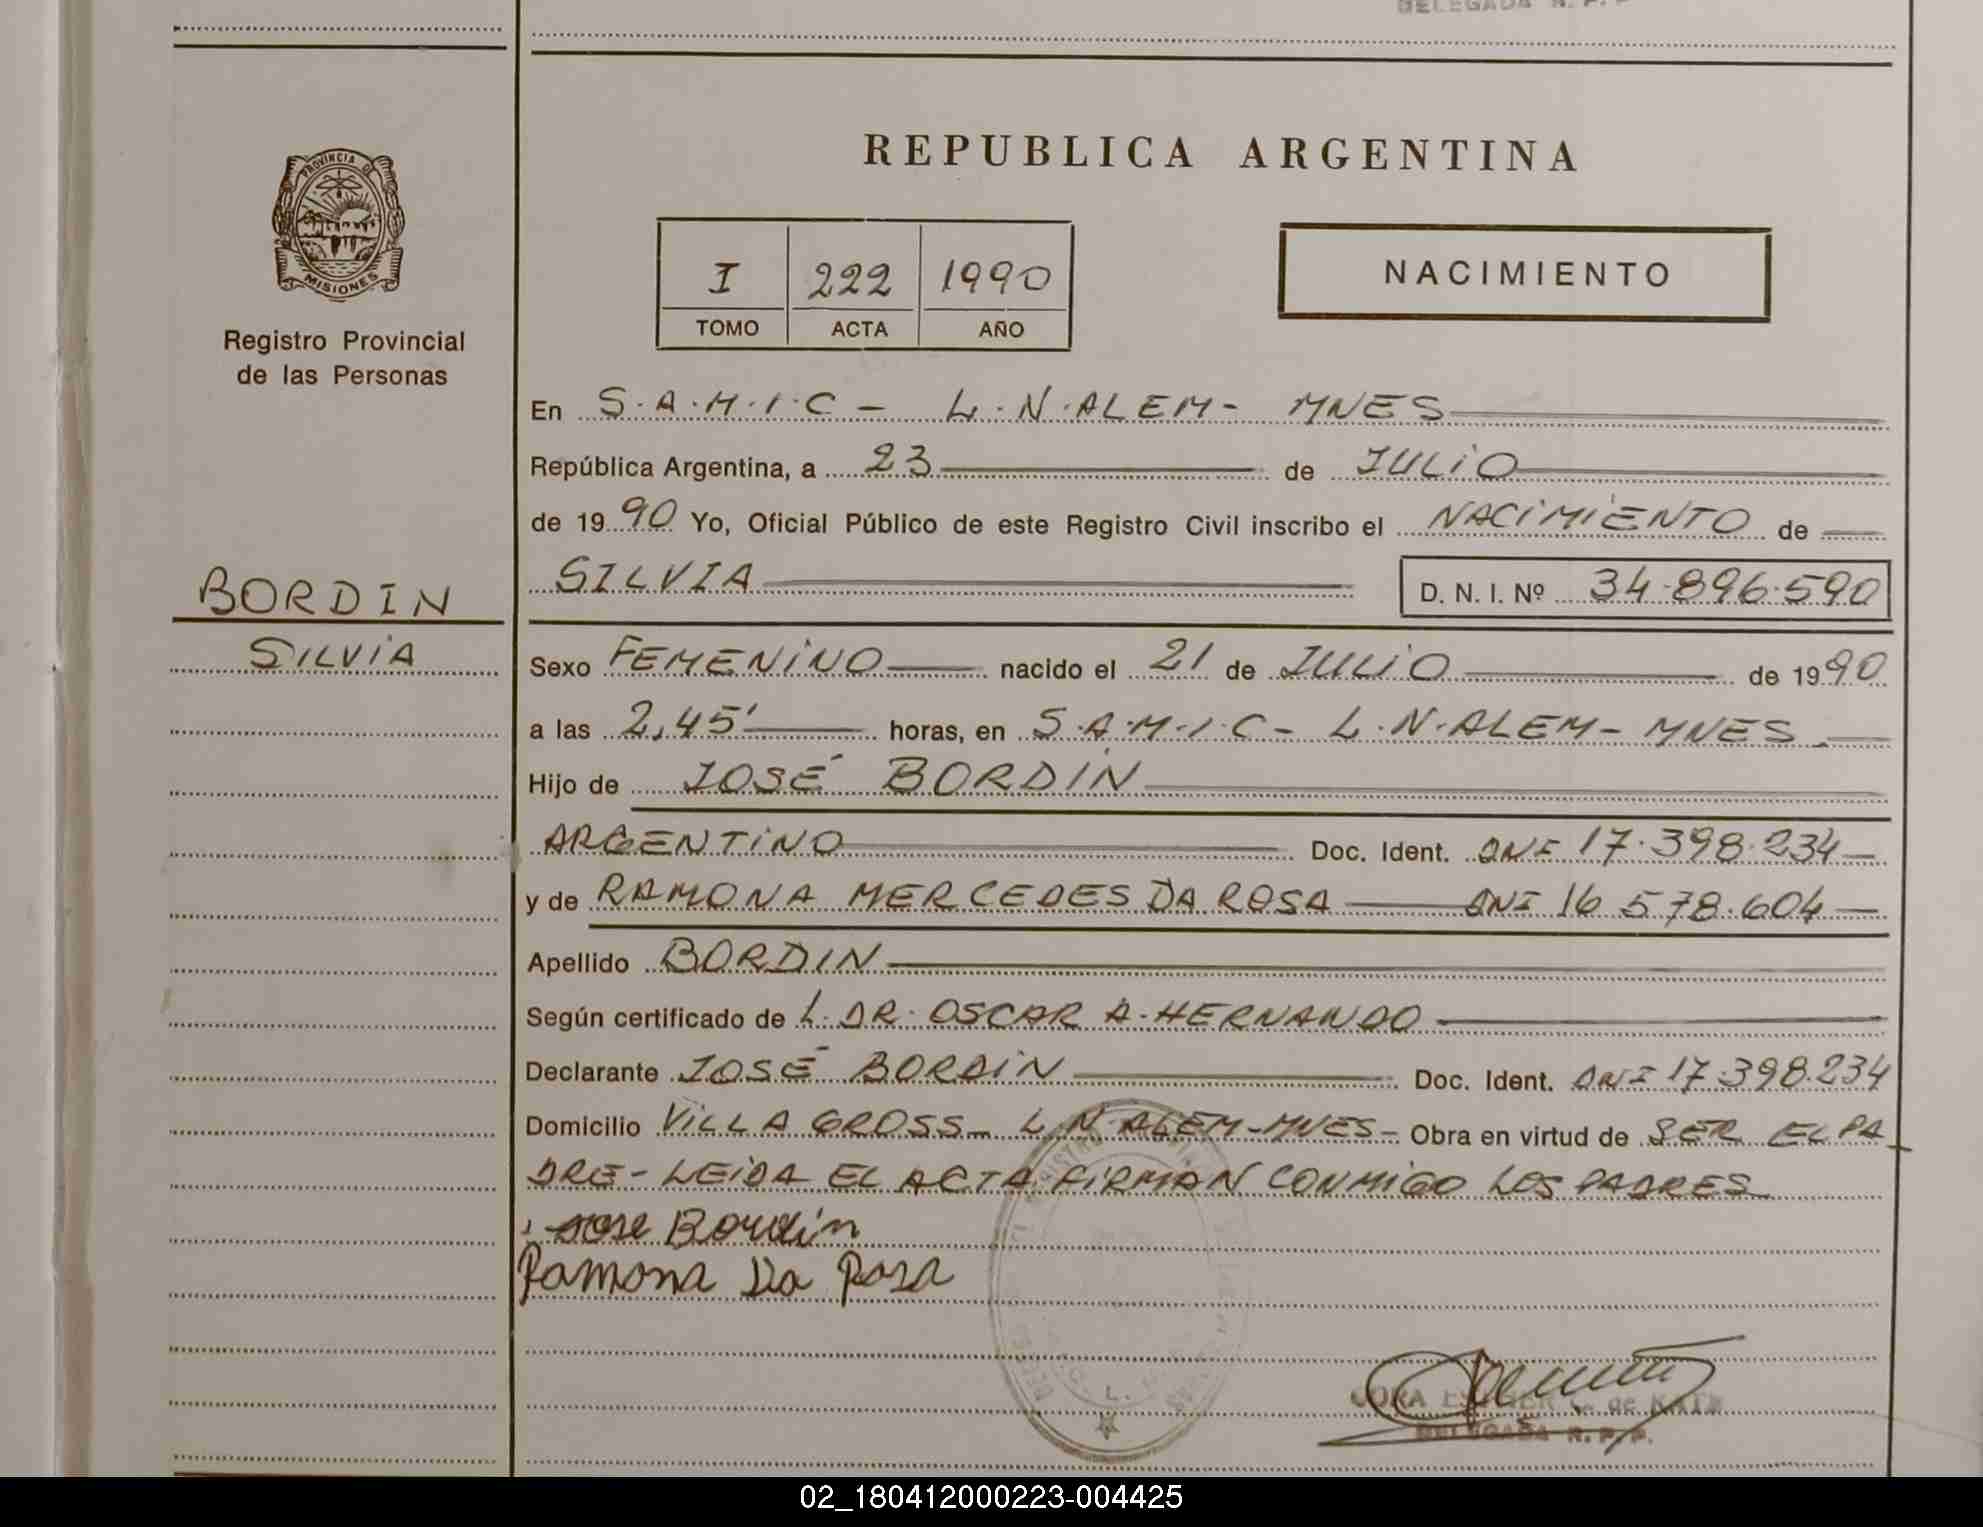 DELEGADA R. P. P
REPUBLICA ARGENTINA
PROVINCIA DE
MISIONES
Registro Provincial
de las Personas
I 222 1990
TOMO ACTA AÑO
NACIMIENTO
En S.A.M.I.C - L.N.ALEM- MNES
República Argentina, a 23 de JULIO
de 1990 Yo, Oficial Público de este Registro Civil inscribo el NACIMIENTO de
SILVIA D. N. I. Nº 34.896.590
BORDIN
SILVIA
Sexo FEMENINO nacido el 21 de JULIO de 1990
a las 2,45' horas, en S.A.M.I.C- L.N.ALEM- MNES
Hijo de JOSÉ BORDIN
ARGENTINO Doc. Ident. DNI 17.398.234
y de RAMONA MERCEDES DA ROSA DNI 16 578.604
Apellido BORDIN
Según certificado de L. DR. OSCAR A. HERNANDO
Declarante JOSÉ BORDIN Doc. Ident. DNI 17.398.234
Domicilio VILLA GROSS- L N ALEM-MNES- Obra en virtud de SER EL PA
DRE- LEIDA EL ACTA FIRMAN CONMIGO LOS PADRES
Jose Bordin
Ramona Da Rosa
DELEGADA R. P. P.
02_180412000223-004425